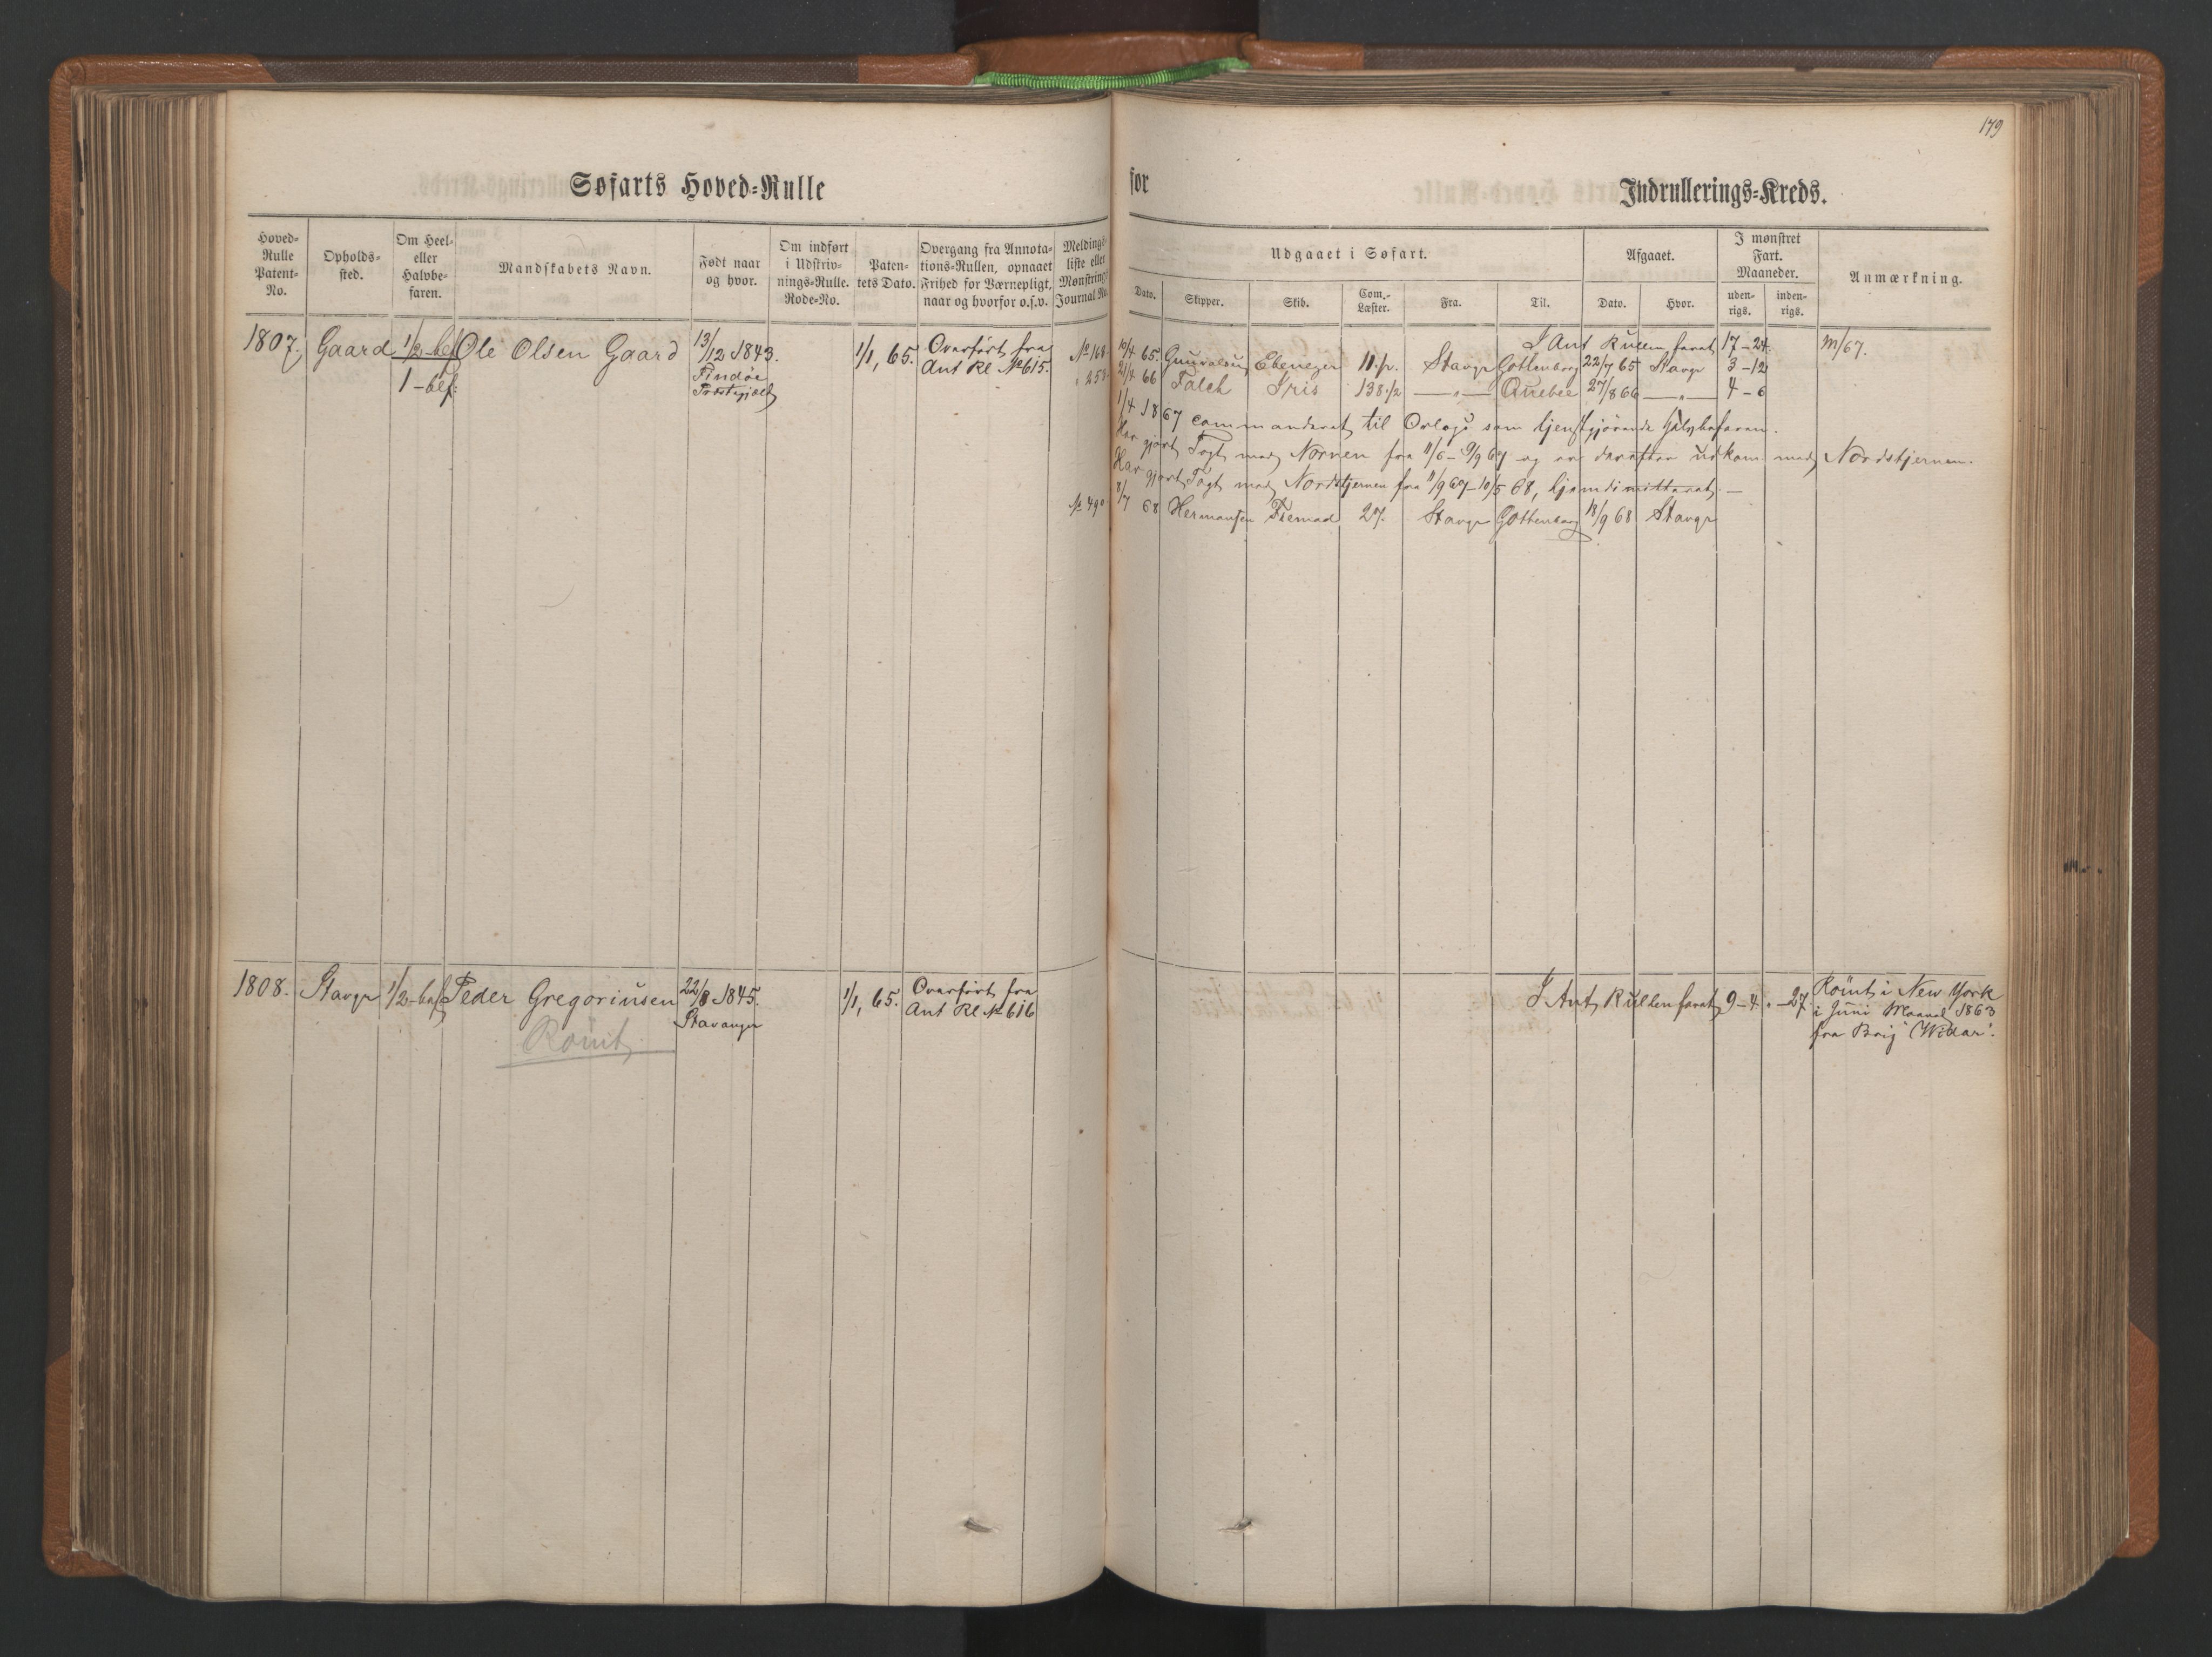 179
Søfarts Hoved=Rulle
for
Indrullerings=Kreds.
Hoved=
Rulle
Patent=
No.
Opholds=
sted.
Om Heel=
eller
Halvbe=
faren.
Mandskabets Navn.
Født naar
og hvor.
Om indført
i Udskriv=
nings=Rulle.
Rode=No.
Paten=
tets Dato.
Overgang fra Annota=
tions=Rullen, opnaaet
Frihed for Værnepligt,
naar og hvorfor o.s.v.
Meldings=
liste eller
Mønstrings
Journal No.
Udgaaet i Søfart.
Dato.
Skipper.
Skib.
Com.=
Læster.
Fra.
Til.
Afgaaet.
Dato.
Hvor.
I mønstret
Fart.
Maaneder.
uden=
rigs.
inden=
rigs.
Anmærkning.
1807. Gaard 1/2-bef Ole Olsen Gaard 13/12 1843. 1/1, 65. Overført fra
1-bef. Findöe Ant Rl No 615.
Præstegjæld
I Ant Rullen faret 17-24. M/67.
No 168. 10/4 65. Ebenezer 11. Stavgr Gottenborg 22/7 65 Stavgr 3-12
" 258. 21/4 66 Falch Iris 138 1/2 —"— Quebec 27/8 66 —"— 4-6
1/4 1867 commanderet til Orlogs som tjenstgjørende Halvbefaren.
Har gjort Togt med Nornen fra 11/6- 9/9 67 og er derefter udkom. med Nordstjernen.
Har gjort Togt med Nordstjernen fra 11/9 67-10/5 68, hjemdimitteret. —
No 490 8/7 68 Hermansen Fremad 27. Stavgr Gottenborg 18/9 68 Stavgr
1808. Stavgr 1/2-bef Peder Gregoriusen 22/8 1845. 1/1, 65. Overført fra
Stavanger Ant Rl No 616
Römt
I Ant Rullen faret 9-4. " -27 Römt i New York
i Juni Maaned 1863
fra Brig "Widar".